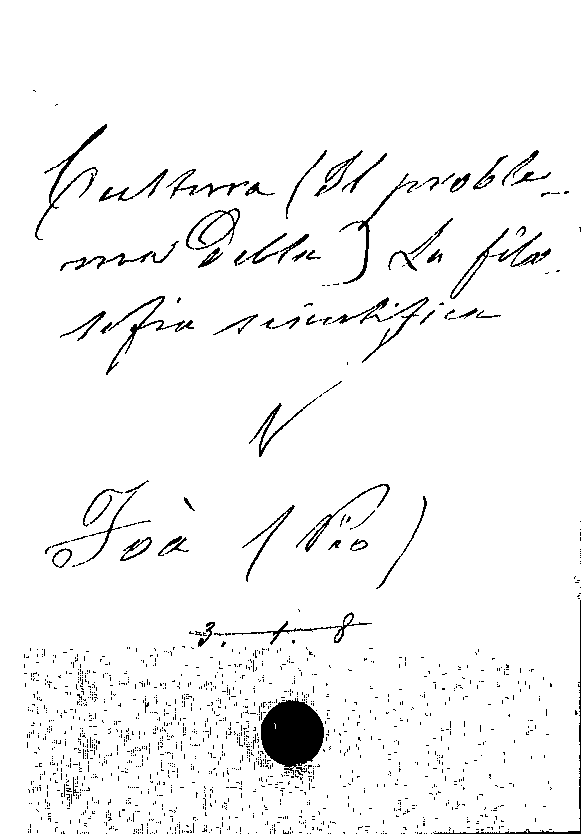 Cultura (Il proble-
ma della) La filo-
sofia scientifica
V
Foà (Pio)
3. 1. 8